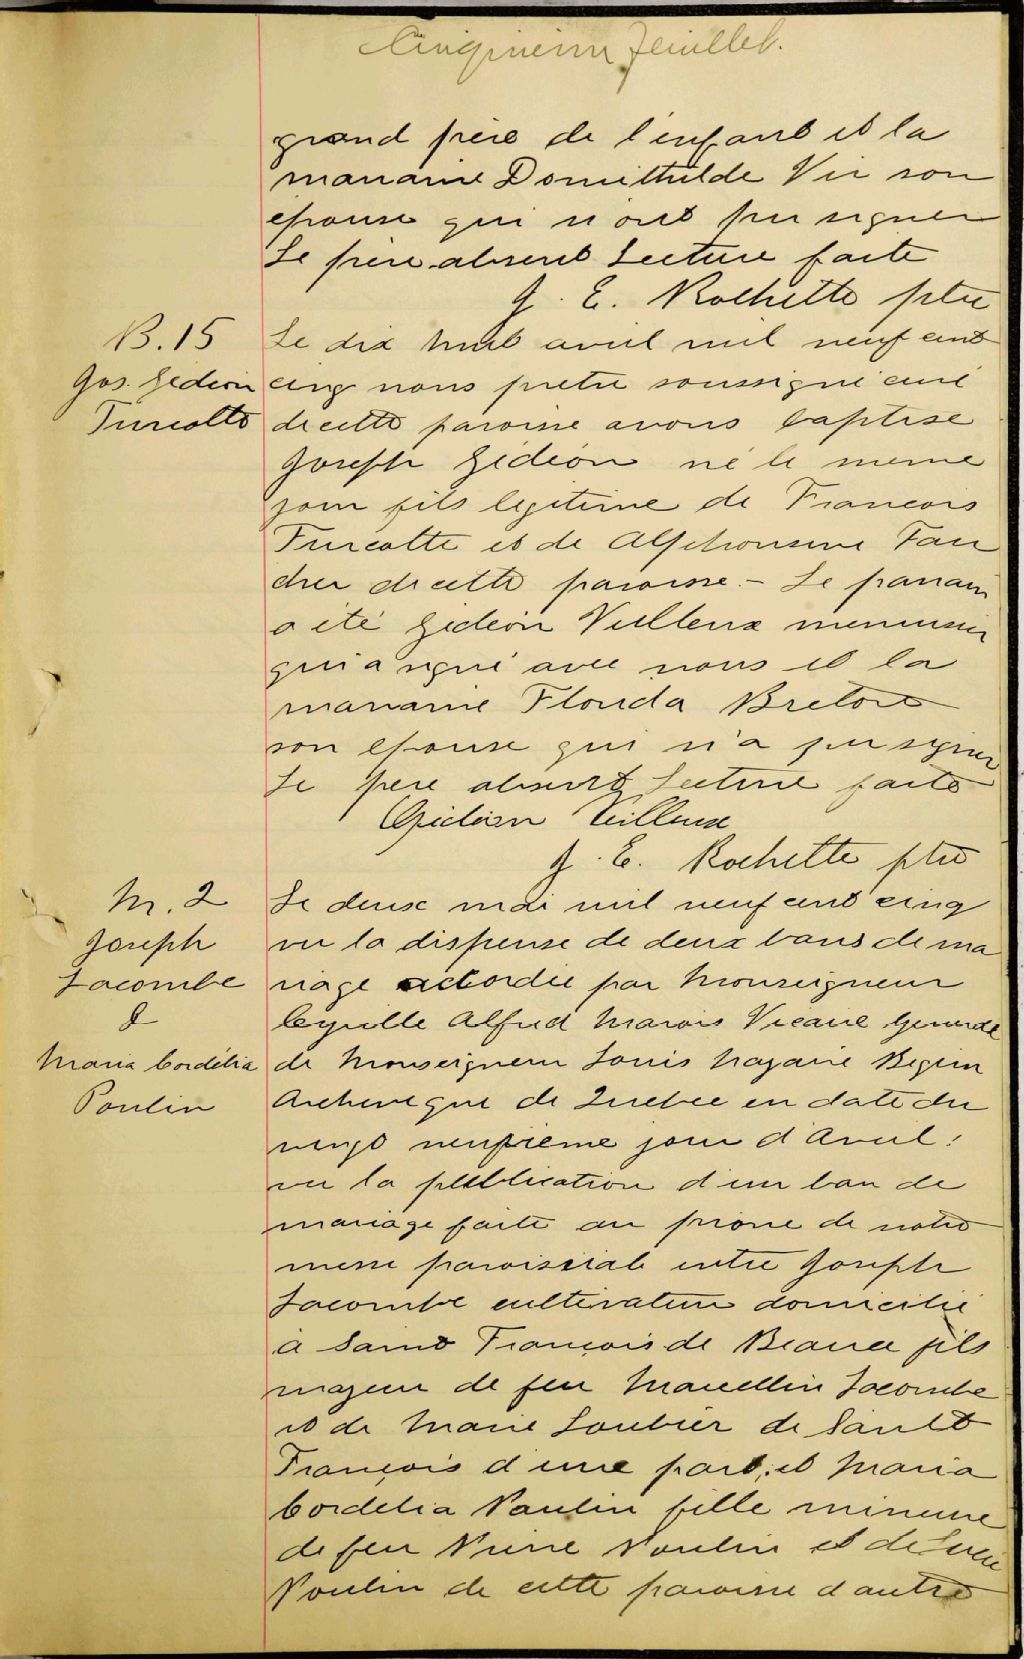 Cinquieme feuillet.
grand père de l'enfant et la
marraine Domithilde Vir son
epouse qui n'ont pu signer
Le père absent Lecture faite
J. E. Rochette ptre
B. 15
Jos. Gedeon
Turcotte
Le dix huit avril mil neuf cent
cinq nous pretre soussigné curé
de cette paroisse avons baptise
Joseph Gédéon né le meme
jour fils legitime de Francois
Turcotte et de Alphonsine Fau
cher de cette paroisse. - Le parrain
a été Gedeon Veilleux menuisier
qui a signé avec nous et la
marraine Florida Breton
son epouse qui n'a pu signer
Le pere absent Lecture faite
Gideon Veilleux
J. E. Rochette ptre
M. 2
Joseph
Lacombe
&
Maria Cordélia
Poulin
Le deux mai mil neuf cent cinq
vu la dispense de deux bans de ma
riage accordée par Monseigneur
Cyrille Alfred Marois Vicaire General
de Monseigneur Louis Nazaire Begin
Archeveque de Quebec en date du
vingt neufieme jour d'Avril;
vu la publication d'un ban de
mariage faite au prone de notre
messe paroissiale entre Joseph
Lacombe cultivateur domicilié
à Saint François de Beauce fils
majeur de feu Marcellin Lacombe
et de Marie Loubier de Saint
François d'une part; et Maria
Cordelia Poulin fille mineure
de feu Pierre Poulin et de Lucie
Poulin de cette paroisse d'autre